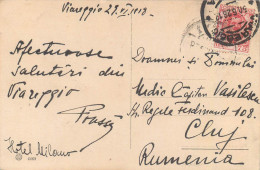 Viareggio 27.VI.1928.
Afectuoase
salutări din
Viareggio
Hotel Milano
Doamnei și Domnului
Medic Căpitan Vasilescu
Str. Regele Ferdinand 108.
Cluj
Rumenia